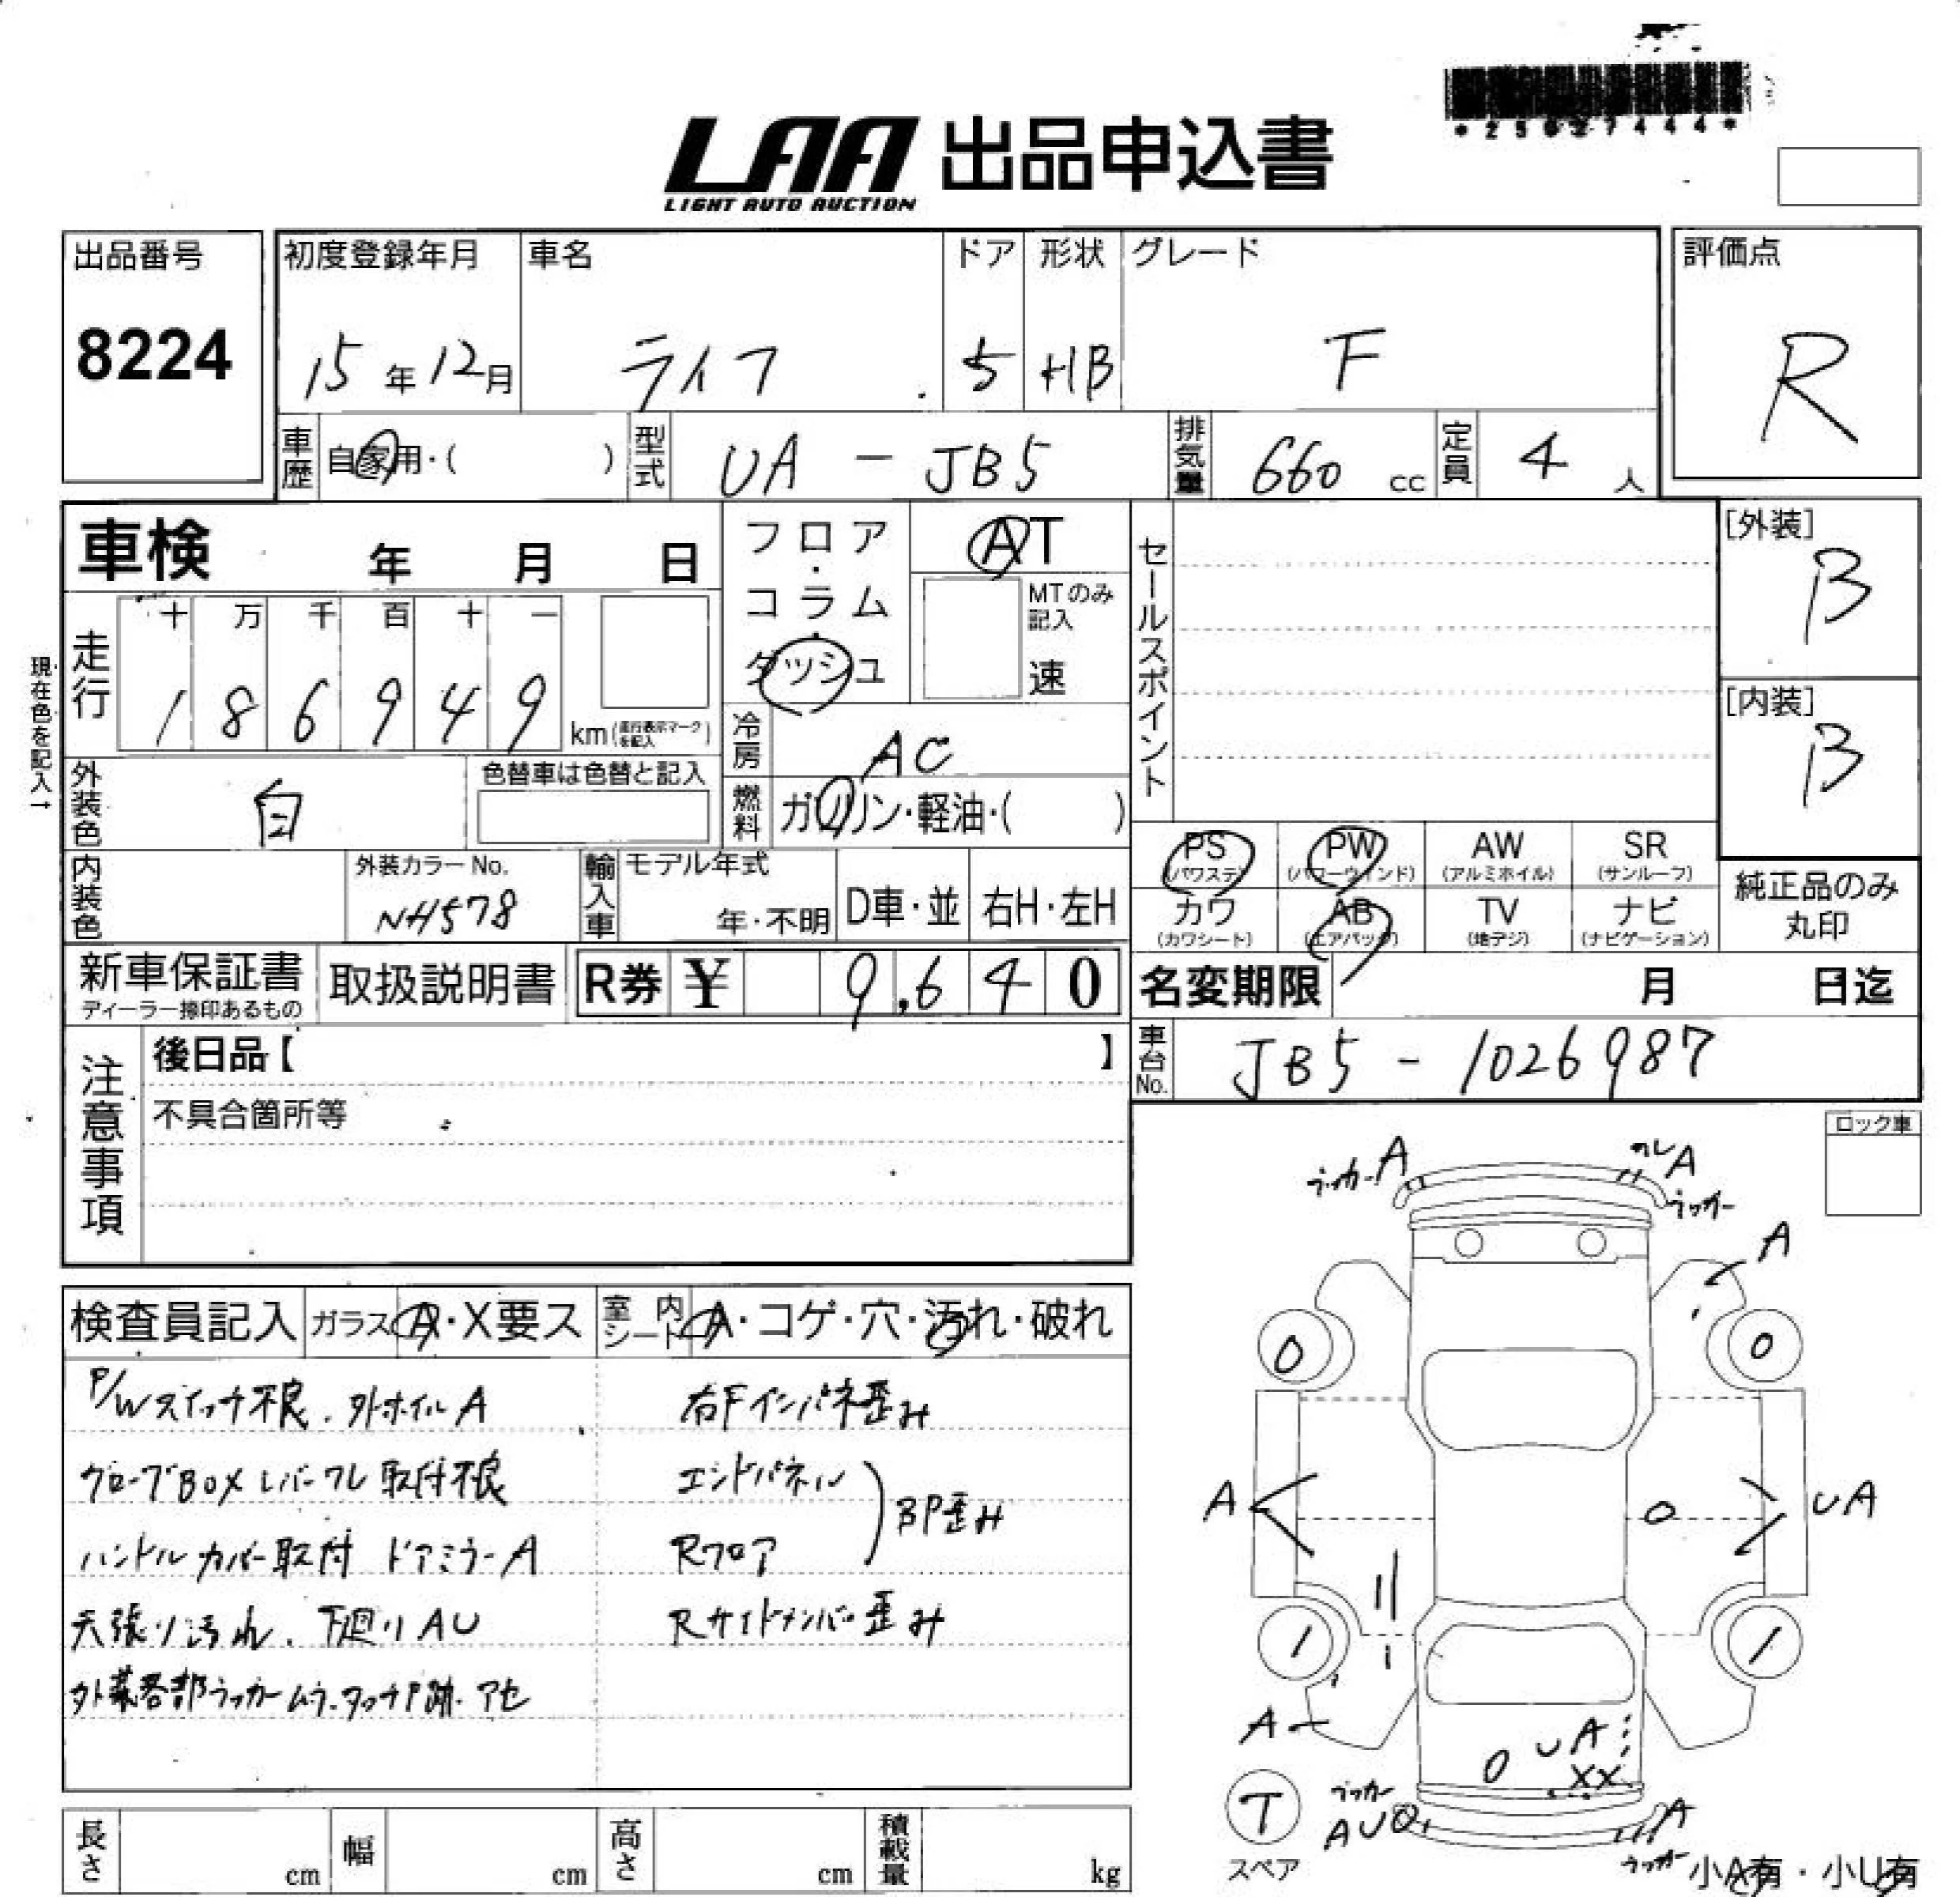 *25027444*
LAA 出品申込書
LIGHT AUTO AUCTION
出品番号
8224
初度登録年月
15年12月
車名
ライフ
ドア
5
形状
HB
グレード
F
評価点
R
車歴
自家用・( )
型式
UA - JB5
排気量
660 cc
定員
4 人
車検 年 月 日
フロア・コラム・ダッシュ
AT
MTのみ記入
速
セールスポイント
[外装]
B
[内装]
B
現在色を記入→
走行
十 万 千 百 十 一
1 8 6 9 4 9
km(走行表示マークを記入)
冷房
AC
外装色
白
色替車は色替と記入
燃料
ガソリン・軽油・( )
PS
(パワステ)
PW
(パワーウインド)
AW
(アルミホイル)
SR
(サンルーフ)
カワ
(カワシート)
AB
(エアバッグ)
TV
(地デジ)
ナビ
(ナビゲーション)
純正品のみ
丸印
内装色
外装カラーNo.
NH578
輸入車
モデル年式
年・不明
D車・並
右H・左H
新車保証書
ディーラー捺印あるもの
取扱説明書
R券 ¥ 9,640
名変期限 月 日迄
車台No.
JB5 - 1026987
注意事項
後日品【 】
不具合箇所等
ロック車
検査員記入
ガラス A・X要ス
室内シート A・コゲ・穴・汚れ・破れ
P/Wスイッチ不良. 外ホイルA
グローブBOXレバーワレ 取付不良
ハンドルカバー取付 ドアミラーA
天張り汚れ. 下廻りAU
外装各部ラッカームラ.タッチP跡.アセ
右Fインパネ歪み
エンドパネル
Rフロア
BP歪み
Rサイドメンバー歪み
ラッカーA
ワレA
ラッカー
A
0
0
A
0
UA
1
1
A
0
UA
XX
T
スペア
ラッカー
AU
A
ラッカー
小A有・小U有
長さ cm
幅 cm
高さ cm
積載量 kg